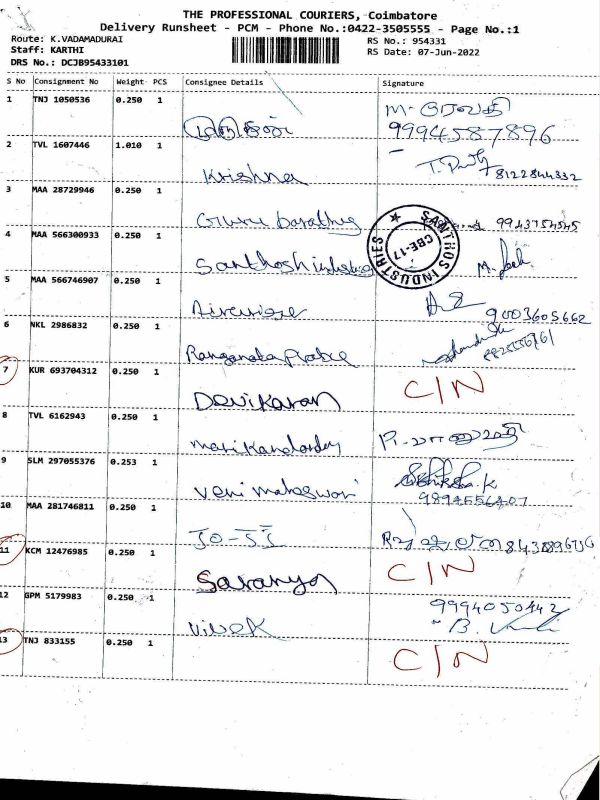 THE PROFESSIONAL COURIERS, Coimbatore
Delivery Runsheet - PCM - Phone No.:0422-3505555 - Page No.:1
Route: K.VADAMADURAI
Staff: KARTHI
DRS No.: DCJB95433101
RS No.: 954331
RS Date: 07-Jun-2022
S No Consignment No Weight PCS Consignee Details Signature
1 TNJ 1050536 0.250 1 M-
9994587896
2 TVL 1607446 1.010 1 Krishna T. 8122844332
3 MAA 28729946 0.250 1 Guru 9943754545
4 MAA 566300933 0.250 1 Santhosh industries M.
SANTHOS INDUSTRIES
CBE-17
5 MAA 566746907 0.250 1 9003605662
6 NKL 2986832 0.250 1
7 KUR 693704312 0.250 1 Devikaran C/N
8 TVL 6162943 0.250 1
9 SLM 297055376 0.253 1 Veni maheswari K
10 MAA 281746811 0.250 1
11 KCM 12476985 0.250 1 Saranya C/N
12 GPM 5179983 0.250 1 Vivek 9994050442
B.
13 TNJ 833155 0.250 1 C/N